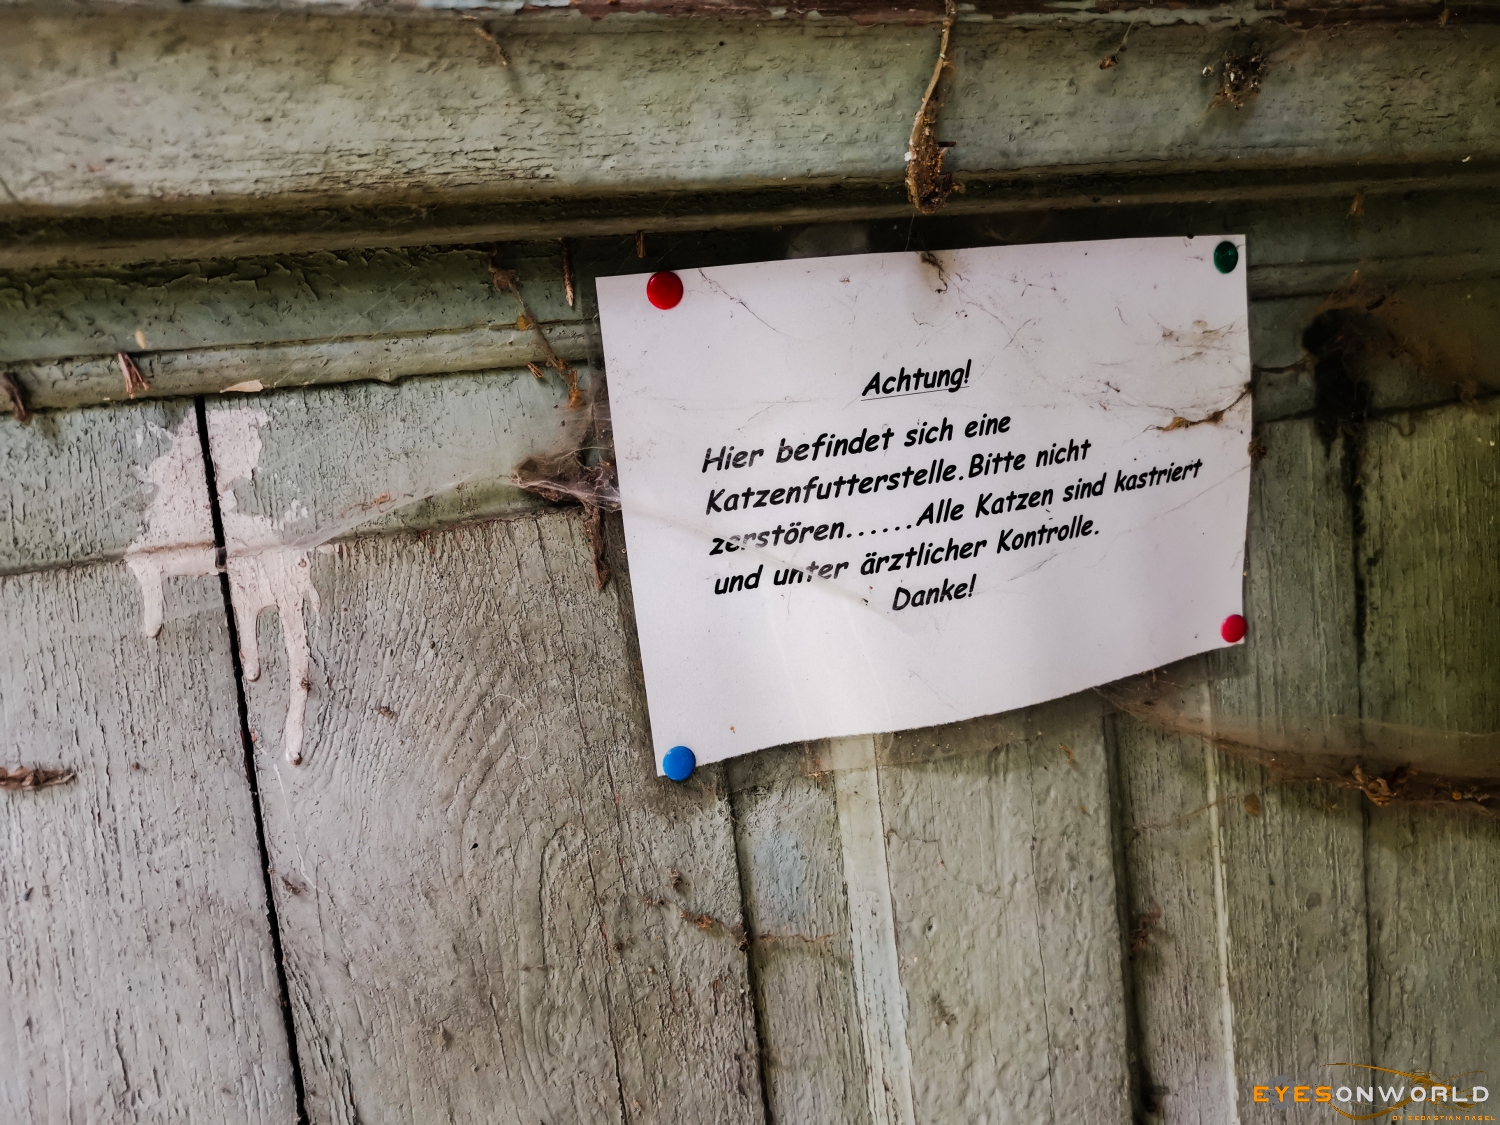 Achtung!
Hier befindet sich eine
Katzenfutterstelle.Bitte nicht
zerstören......Alle Katzen sind kastriert
und unter ärztlicher Kontrolle.
Danke!
EYESONWORLD
BY SEBASTIAN NASEL